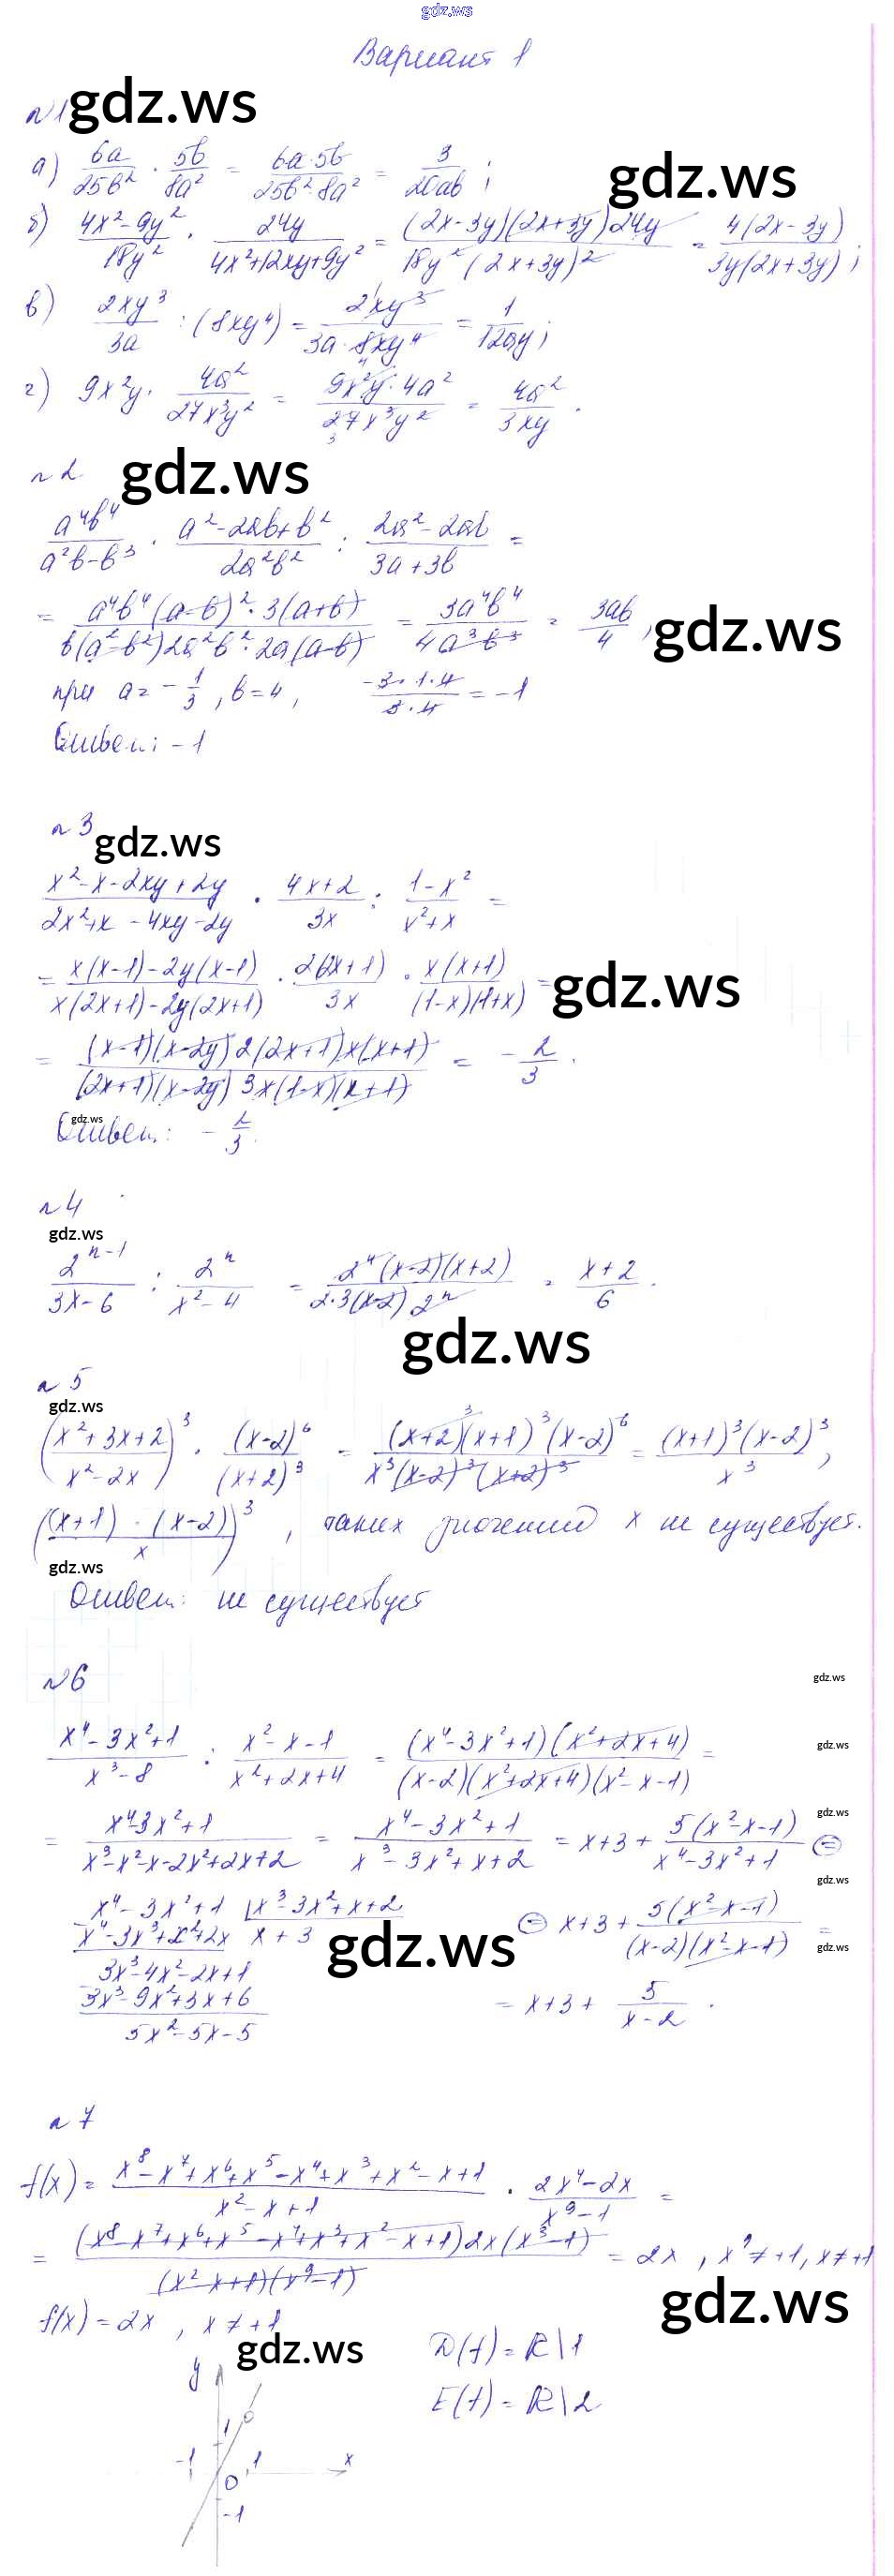 gdz.ws
Вариант 1
№1 gdz.ws
а) 6a/25b² · 5b/8a² = 6a·5b/25b²·8a² = 3/20ab ; gdz.ws
б) 4x²-9y²/18y² · 24y/4x²+12xy+9y² = (2x-3y)(2x+3y)24y/18y²(2x+3y)² = 4(2x-3y)/3y(2x+3y) ;
в) 2xy³/3a : (8xy⁴) = 2xy³/3a·8xy⁴ = 1/12ay ;
г) 9x²y · 4a²/27x³y² = 9x²y·4a²/27x³y² = 4a²/3xy .
№2 gdz.ws
a⁴b⁴/a²b-b³ · a²-2ab+b²/2a²b² : 2a²-2ab/3a+3b =
= a⁴b⁴(a-b)²·3(a+b)/b(a²-b²)2a²b²·2a(a-b) = 3a⁴b⁴/4a³b³ = 3ab/4 , gdz.ws
при a = -1/3 , b=4 , -3·1·4/3·4 = -1
Ответ: -1
№3 gdz.ws
x²-x-2xy+2y/2x²+x-4xy-2y · 4x+2/3x : 1-x²/x²+x =
= x(x-1)-2y(x-1)/x(2x+1)-2y(2x+1) · 2(2x+1)/3x · x(x+1)/(1-x)(1+x) = gdz.ws
= (x-1)(x-2y)2(2x+1)x(x+1)/(2x+1)(x-2y)3x(1-x)(x+1) = -2/3 .
gdz.ws
Ответ: -2/3.
№4
gdz.ws
2ⁿ⁻¹/3x-6 : 2ⁿ/x²-4 = 2ⁿ(x-2)(x+2)/2·3(x-2)2ⁿ = x+2/6 .
gdz.ws
№5
gdz.ws
(x²+3x+2/x²-2x)³ · (x-2)⁶/(x+2)³ = (x+2)³(x+1)³(x-2)⁶/x³(x-2)³(x+2)³ = (x+1)³(x-2)³/x³ ,
((x+1)·(x-2)/x)³ , таких значений x не существует.
gdz.ws
Ответ: не существует
№6 gdz.ws
x⁴-3x²+1/x³-8 : x²-x-1/x²+2x+4 = (x⁴-3x²+1)(x²+2x+4)/(x-2)(x²+2x+4)(x²-x-1) = gdz.ws
= x⁴-3x²+1/x³-x²-x-2x²+2x+2 = x⁴-3x²+1/x³-3x²+x+2 = x+3+ 5(x²-x-1)/x⁴-3x²+1 = gdz.ws
gdz.ws
x⁴-3x²+1 | x³-3x²+x+2
x⁴-3x³+x²+2x x+3 gdz.ws = x+3+ 5(x²-x-1)/(x-2)(x²-x-1) = gdz.ws
3x³-4x²-2x+1
3x³-9x²+3x+6 = x+3+ 5/x-2 .
5x²-5x-5
№7
f(x) = x⁸-x⁷+x⁶+x⁵-x⁴+x³+x²-x+1/x²-x+1 · 2x⁴-2x/x⁹-1 =
= (x⁸-x⁷+x⁶+x⁵-x⁴+x³+x²-x+1)2x(x³-1)/(x²-x+1)(x⁹-1) = 2x , x⁹≠+1, x≠+1
gdz.ws
f(x) = 2x , x≠+1
gdz.ws
D(f) = R\1
E(f) = R\2
y
1
-1 1 x
0
-1